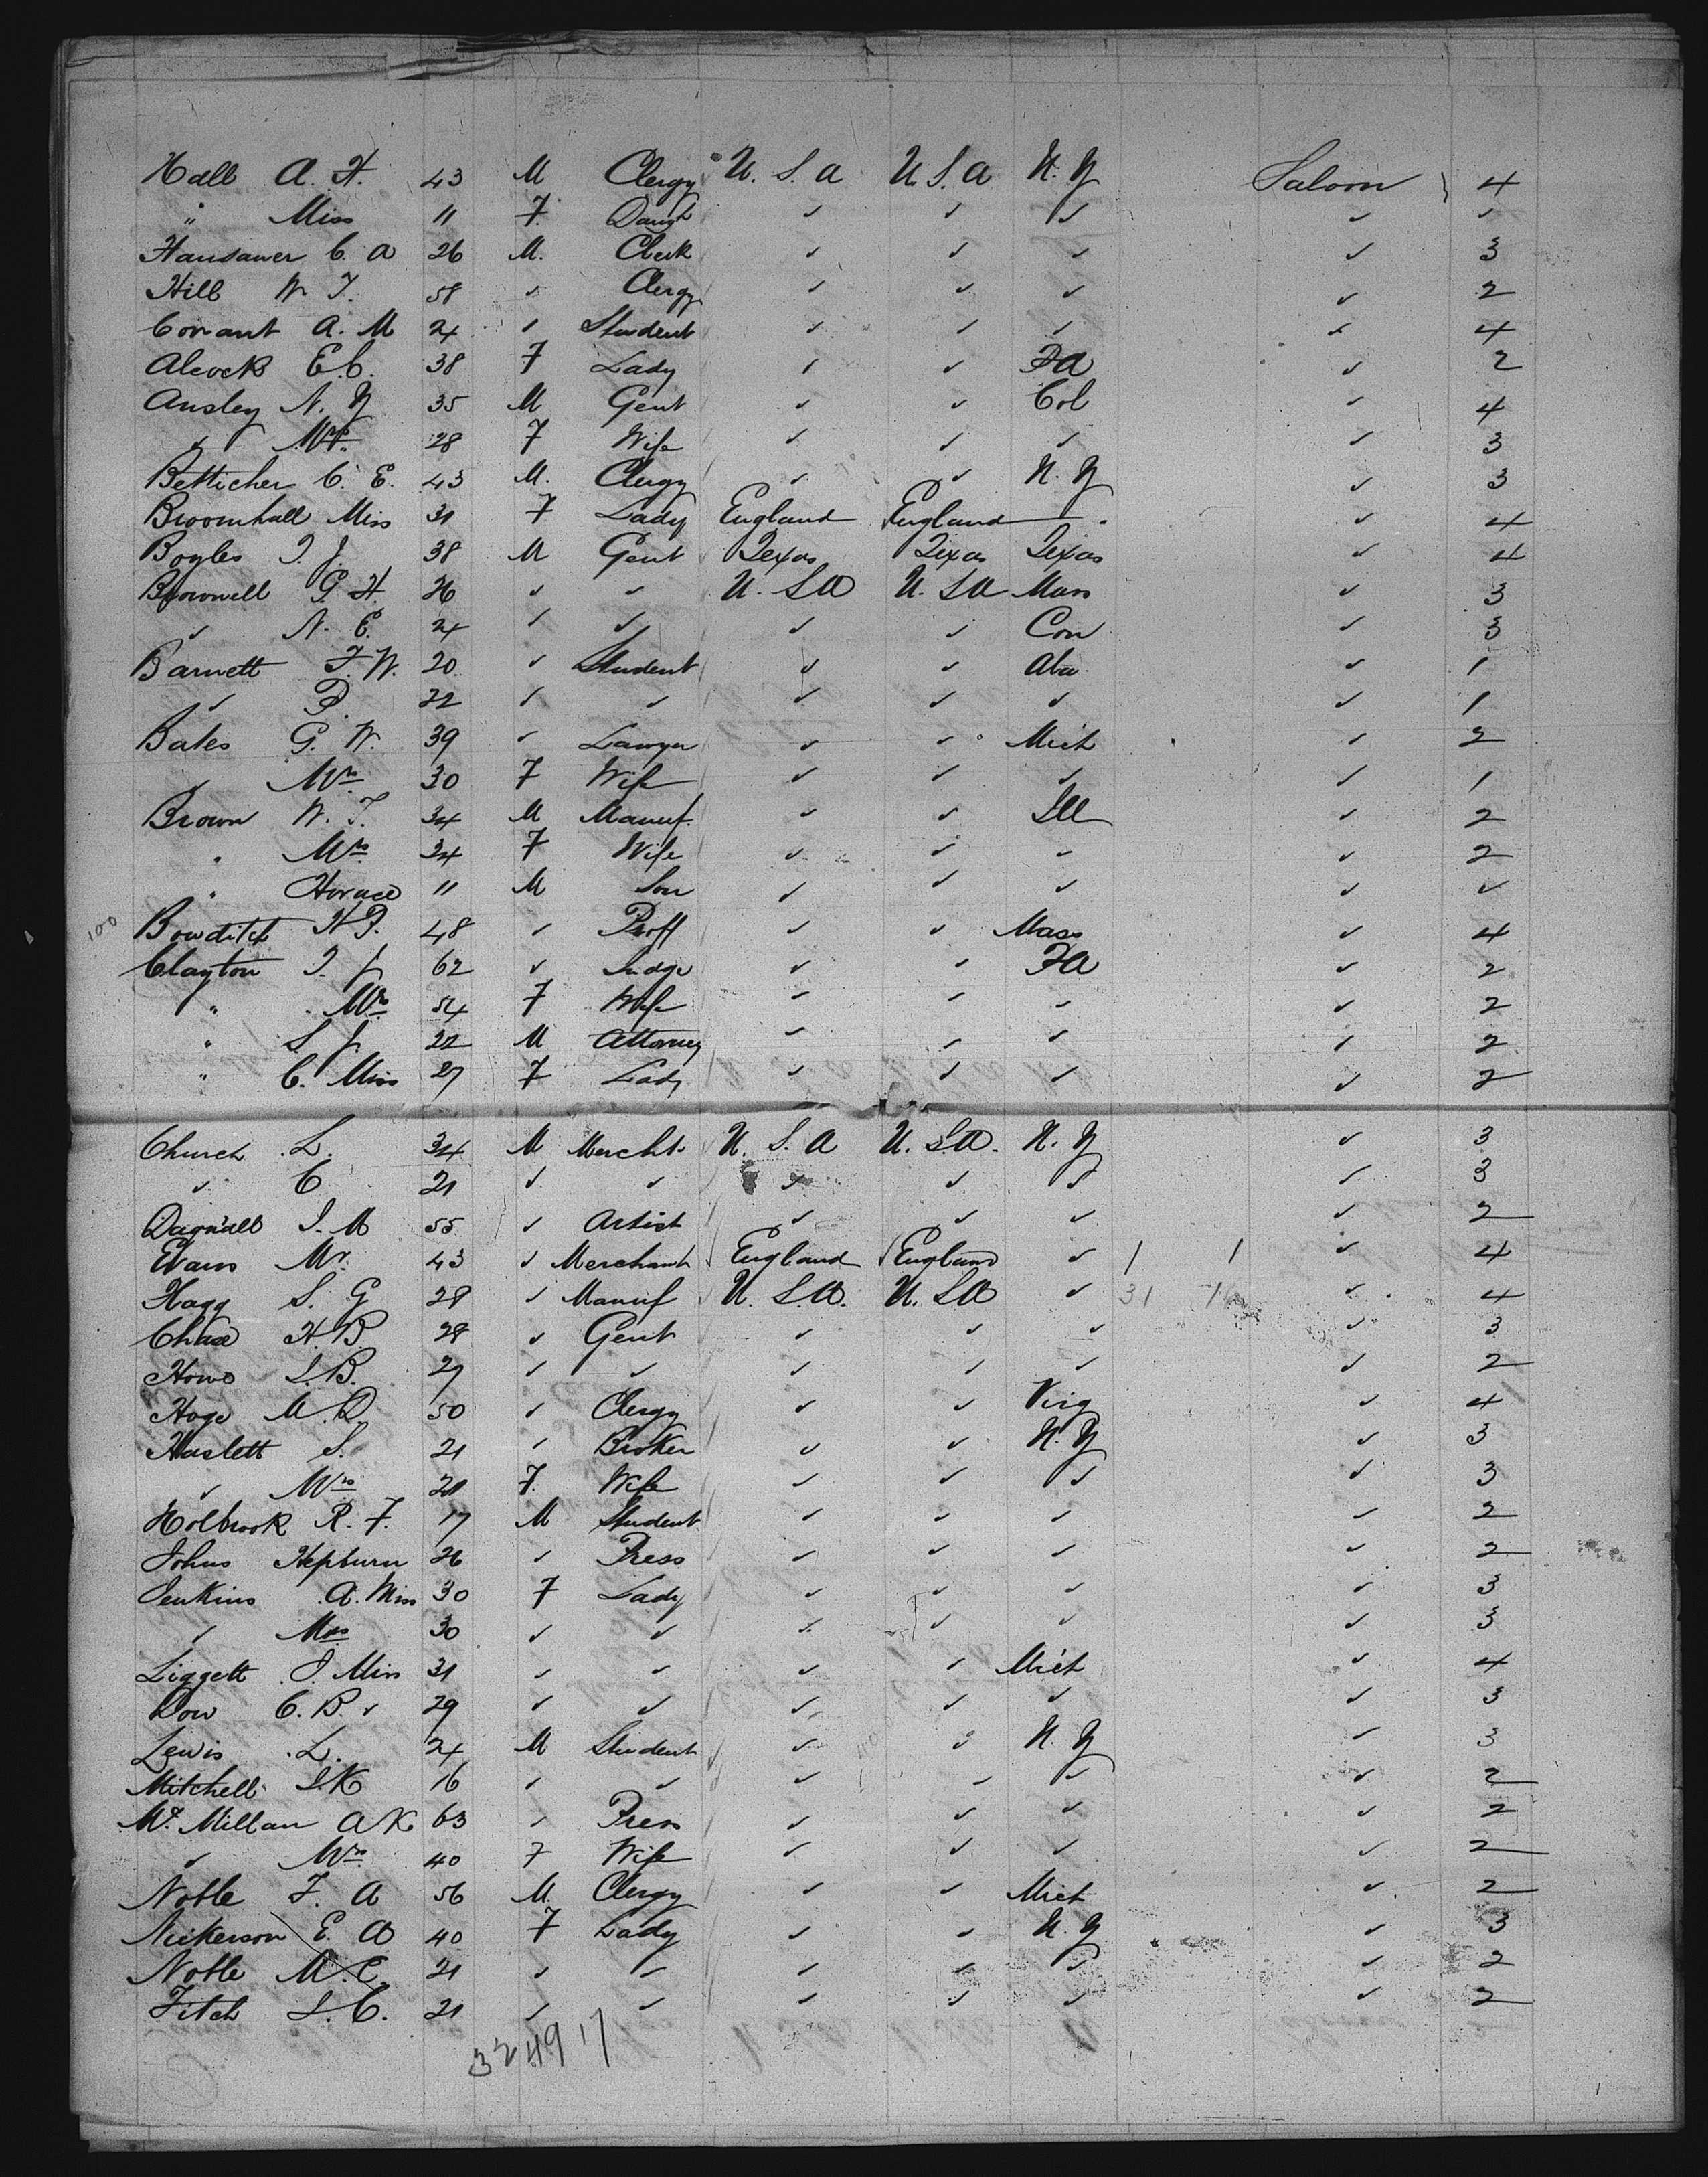 Hall A. H. 43 M Clergy U. S. A U. S. A N. Y Saloon 4
" Miss 11 F. Daugh ✓ ✓ ✓ ✓ ✓
Hansawer C. A 26 M. Clerk ✓ ✓ ✓ ✓ 3
Hill W. T. 58 ✓ Clergy ✓ ✓ ✓ ✓ 2
Conant A. M 24 ✓ Student ✓ ✓ ✓ ✓ 4
Alcock E. C. 38 F Lady ✓ ✓ PA ✓ 2
Ansley N. Y 35 M Gent ✓ ✓ Col ✓ 4
✓ Mrs 28 F Wife ✓ ✓ ✓ ✓ 3
Betticher C. E. 43 M. Clergy ✓ ✓ N. Y ✓ 3
Broomhall Miss 31 F Lady England England — ✓ 4
Boyles T. J. 38 M Gent Texas Texas Texas ✓ 4
Brownell G. H. 26 ✓ ✓ U. S A U. S A Mass ✓ 3
✓ N. E. 24 ✓ ✓ ✓ ✓ Con ✓ 3
Barnett F. W. 20 ✓ Student ✓ ✓ Aba ✓ 1
✓ P. 22 ✓ ✓ ✓ ✓ ✓ ✓ 1
Bates G. W. 39 ✓ Lawyer ✓ ✓ Mich ✓ 2
✓ Mrs 30 F Wife ✓ ✓ ✓ ✓ 1
Brown W. T. 34 M Manuf. ✓ ✓ Ill ✓ 2
" Mrs 34 F Wife ✓ ✓ ✓ ✓ 2
" Horace 11 M Son ✓ ✓ ✓ ✓ ✓
100 Bowditch H P. 48 ✓ Proff ✓ ✓ Mass ✓ 4
Clayton T. J 62 ✓ Judge ✓ ✓ PA ✓ 2
" Mrs 54 F Wife ✓ ✓ ✓ ✓ 2
" S J. 22 M Attorney ✓ ✓ ✓ ✓ 2
" C. Miss 27 F Lady ✓ ✓ ✓ ✓ 2
Church L. 34 M Mercht. U. S. A U. S. A. N. Y ✓ 3
✓ C 21 ✓ ✓ ✓ ✓ ✓ ✓ 3
Dagnall J. M 55 ✓ Artist ✓ ✓ ✓ ✓ 2
Evans Mr. 43 ✓ Merchant England England ✓ 1 1 ✓ 4
Hagg S. G 28 ✓ Manuf U. S. A. U. S A ✓ 31 16 ✓ 4
Chase H. B 28 ✓ Gent ✓ ✓ ✓ ✓ 3
Howe S. B. 27 ✓ ✓ ✓ ✓ ✓ ✓ 2
Hoge M. D 50 ✓ Clergy ✓ ✓ Virg ✓ 4
Haslett S. 21 ✓ Broker ✓ ✓ N. Y ✓ 3
✓ Mrs 21 F. Wife ✓ ✓ ✓ ✓ 3
Holbrook R. F. 17 M Student ✓ ✓ ✓ ✓ 2
Johns Hepburn 26 ✓ Press ✓ ✓ ✓ ✓ 2
Jenkins A. Miss 30 F Lady ✓ ✓ ✓ ✓ 3
✓ Mrs 30 ✓ ✓ ✓ ✓ ✓ ✓ 3
Liggett J. Miss 31 ✓ ✓ ✓ ✓ Mich ✓ 4
Low C. B. ✓ 29 ✓ ✓ ✓ ✓ ✓ ✓ 3
Lewis L. 24 M Student ✓ ✓ N. Y ✓ 3
Mitchell S. K 16 ✓ ✓ ✓ ✓ ✓ ✓ 2
Mc Millan A K 63 ✓ Press ✓ ✓ ✓ ✓ 2
✓ Mrs 40 F Wife ✓ ✓ ✓ ✓ 2
Noble F. A 56 M. Clergy ✓ ✓ Mich ✓ 2
Nickerson E. A 40 F Lady ✓ ✓ N. Y ✓ 3
Noble M. E. 21 ✓ ✓ ✓ ✓ ✓ ✓ 2
Fitch L. C. 21 ✓ ✓ ✓ ✓ ✓ ✓ 2
32 49 17